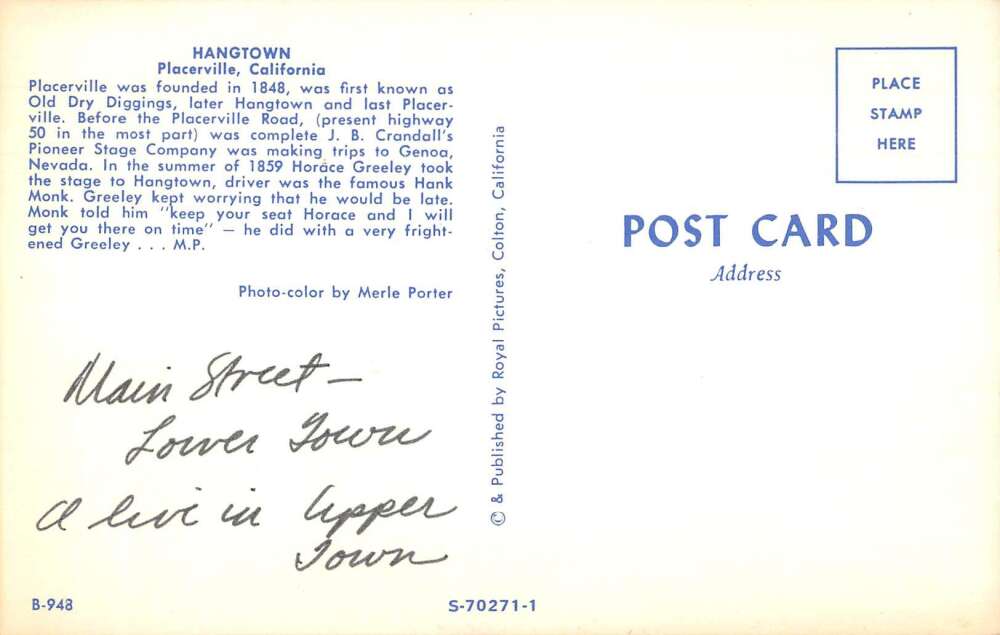 HANGTOWN
Placerville, California
Placerville was founded in 1848, was first known as
Old Dry Diggings, later Hangtown and last Placer-
ville. Before the Placerville Road, (present highway
50 in the most part) was complete J. B. Crandall's
Pioneer Stage Company was making trips to Genoa,
Nevada. In the summer of 1859 Horace Greeley took
the stage to Hangtown, driver was the famous Hank
Monk. Greeley kept worrying that he would be late.
Monk told him "keep your seat Horace and I will
get you there on time" — he did with a very fright-
ened Greeley . . . M.P.
Photo-color by Merle Porter
Main Street —
Lower Town
I live in Upper
Town
B-948
© & Published by Royal Pictures, Colton, California
S-70271-1
PLACE
STAMP
HERE
POST CARD
Address